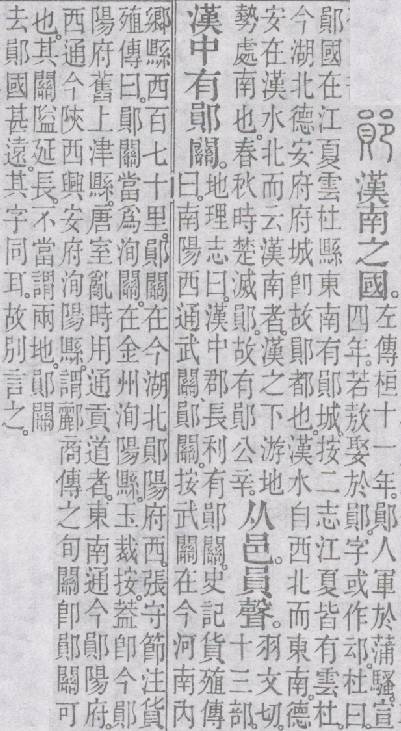 鄖漢南之國。
左傳桓十一年。鄖人軍於蒲騷。宣
四年。若敖娶於鄖。字或作䢵。杜曰。
鄖國在江夏雲杜縣東南有鄖城。按二志江夏皆有雲杜。
今湖北德安府府城卽故鄖都也。漢水自西北而東南。德
安在漢水北而云漢南者。漢之下游地
勢處南也。春秋時楚滅鄖。故有鄖公辛。
从邑。員聲。
羽文切。
十三部。
漢中有鄖關。
地理志曰。漢中郡長利有鄖關。史記貨殖傳
曰。南陽西通武關鄖關。按武關在今河南內
鄉縣西百七十里。鄖關在今湖北鄖陽府西。張守節注貨
殖傳曰。鄖關當爲洵關。在金州洵陽縣。玉裁按。葢卽今鄖
陽府舊上津縣。唐室亂時用通貢道者。東南通今鄖陽府。
西通今陝西興安府洵陽縣。謂酈商傳之旬關卽鄖關可
也。其關隘延長。不當謂兩地。鄖關
去鄖國甚遠。其字同耳。故別言之。